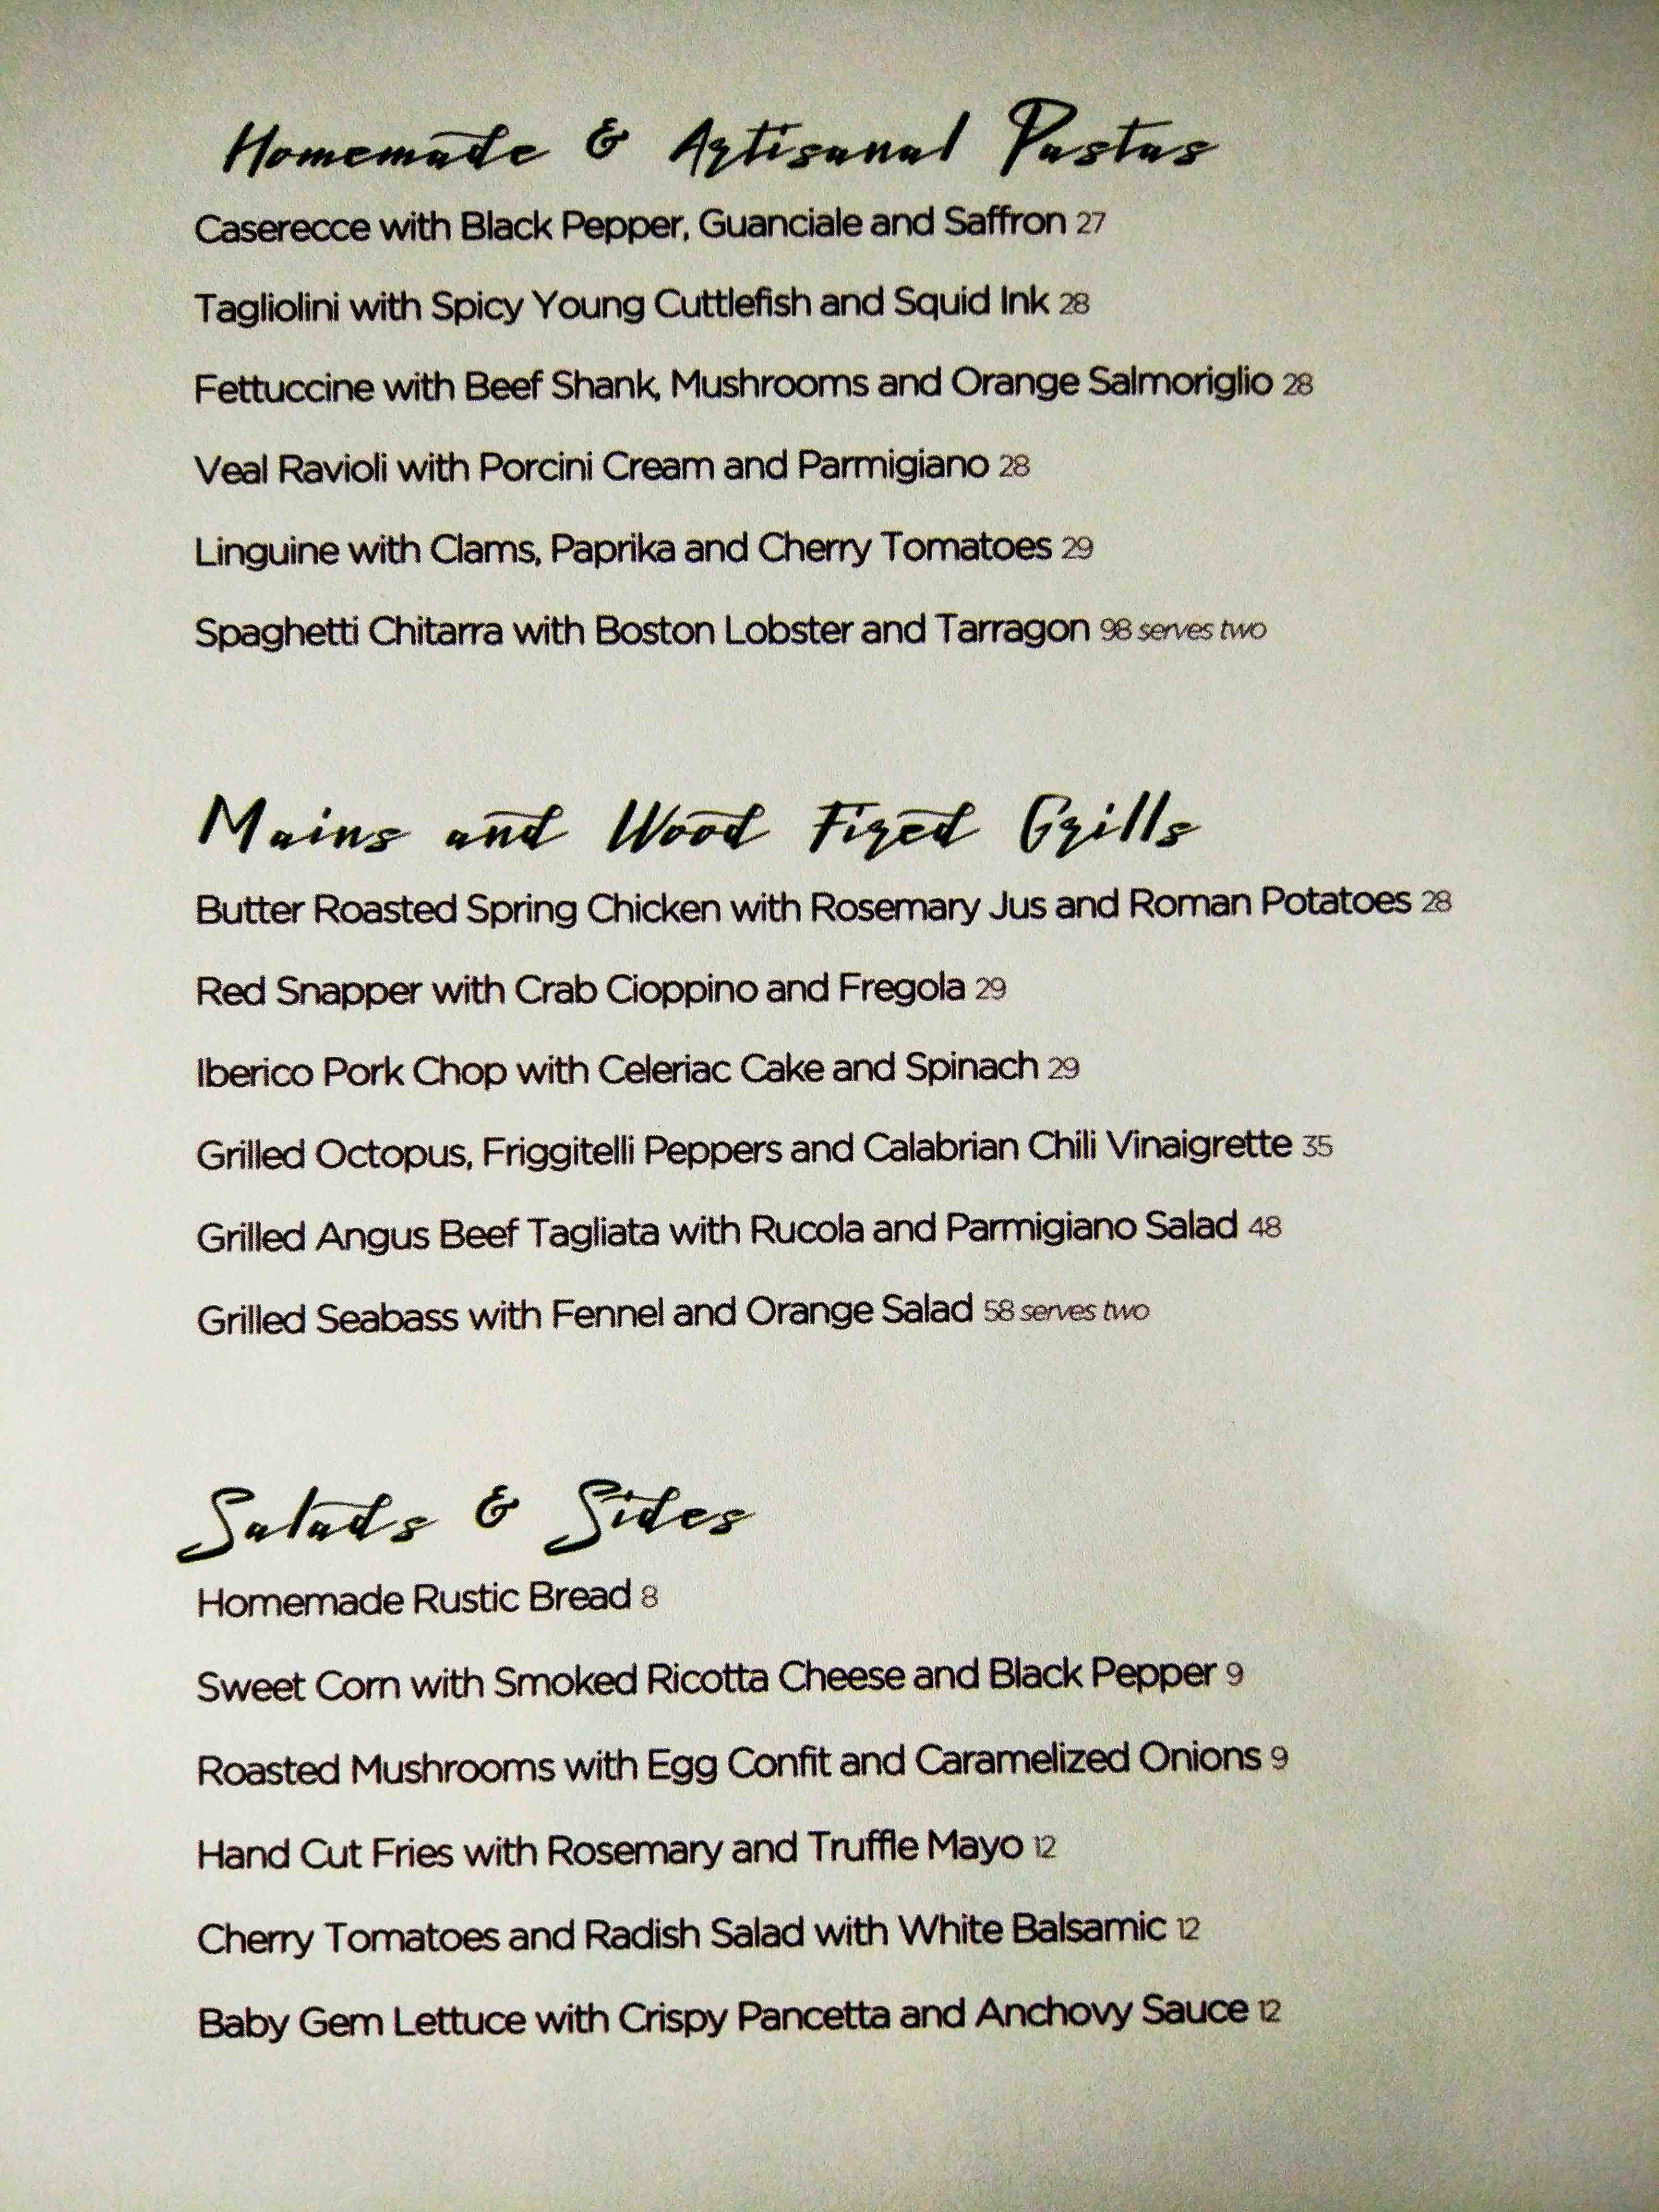 Homemade & Artisanal Pastas
Caserecce with Black Pepper, Guanciale and Saffron 27
Tagliolini with Spicy Young Cuttlefish and Squid Ink 28
Fettuccine with Beef Shank, Mushrooms and Orange Salmoriglio 28
Veal Ravioli with Porcini Cream and Parmigiano 28
Linguine with Clams, Paprika and Cherry Tomatoes 29
Spaghetti Chitarra with Boston Lobster and Tarragon 98 serves two
Mains and Wood Fired Grills
Butter Roasted Spring Chicken with Rosemary Jus and Roman Potatoes 28
Red Snapper with Crab Cioppino and Fregola 29
Iberico Pork Chop with Celeriac Cake and Spinach 29
Grilled Octopus, Friggitelli Peppers and Calabrian Chili Vinaigrette 35
Grilled Angus Beef Tagliata with Rucola and Parmigiano Salad 48
Grilled Seabass with Fennel and Orange Salad 58 serves two
Salads & Sides
Homemade Rustic Bread 8
Sweet Corn with Smoked Ricotta Cheese and Black Pepper 9
Roasted Mushrooms with Egg Confit and Caramelized Onions 9
Hand Cut Fries with Rosemary and Truffle Mayo 12
Cherry Tomatoes and Radish Salad with White Balsamic 12
Baby Gem Lettuce with Crispy Pancetta and Anchovy Sauce 12